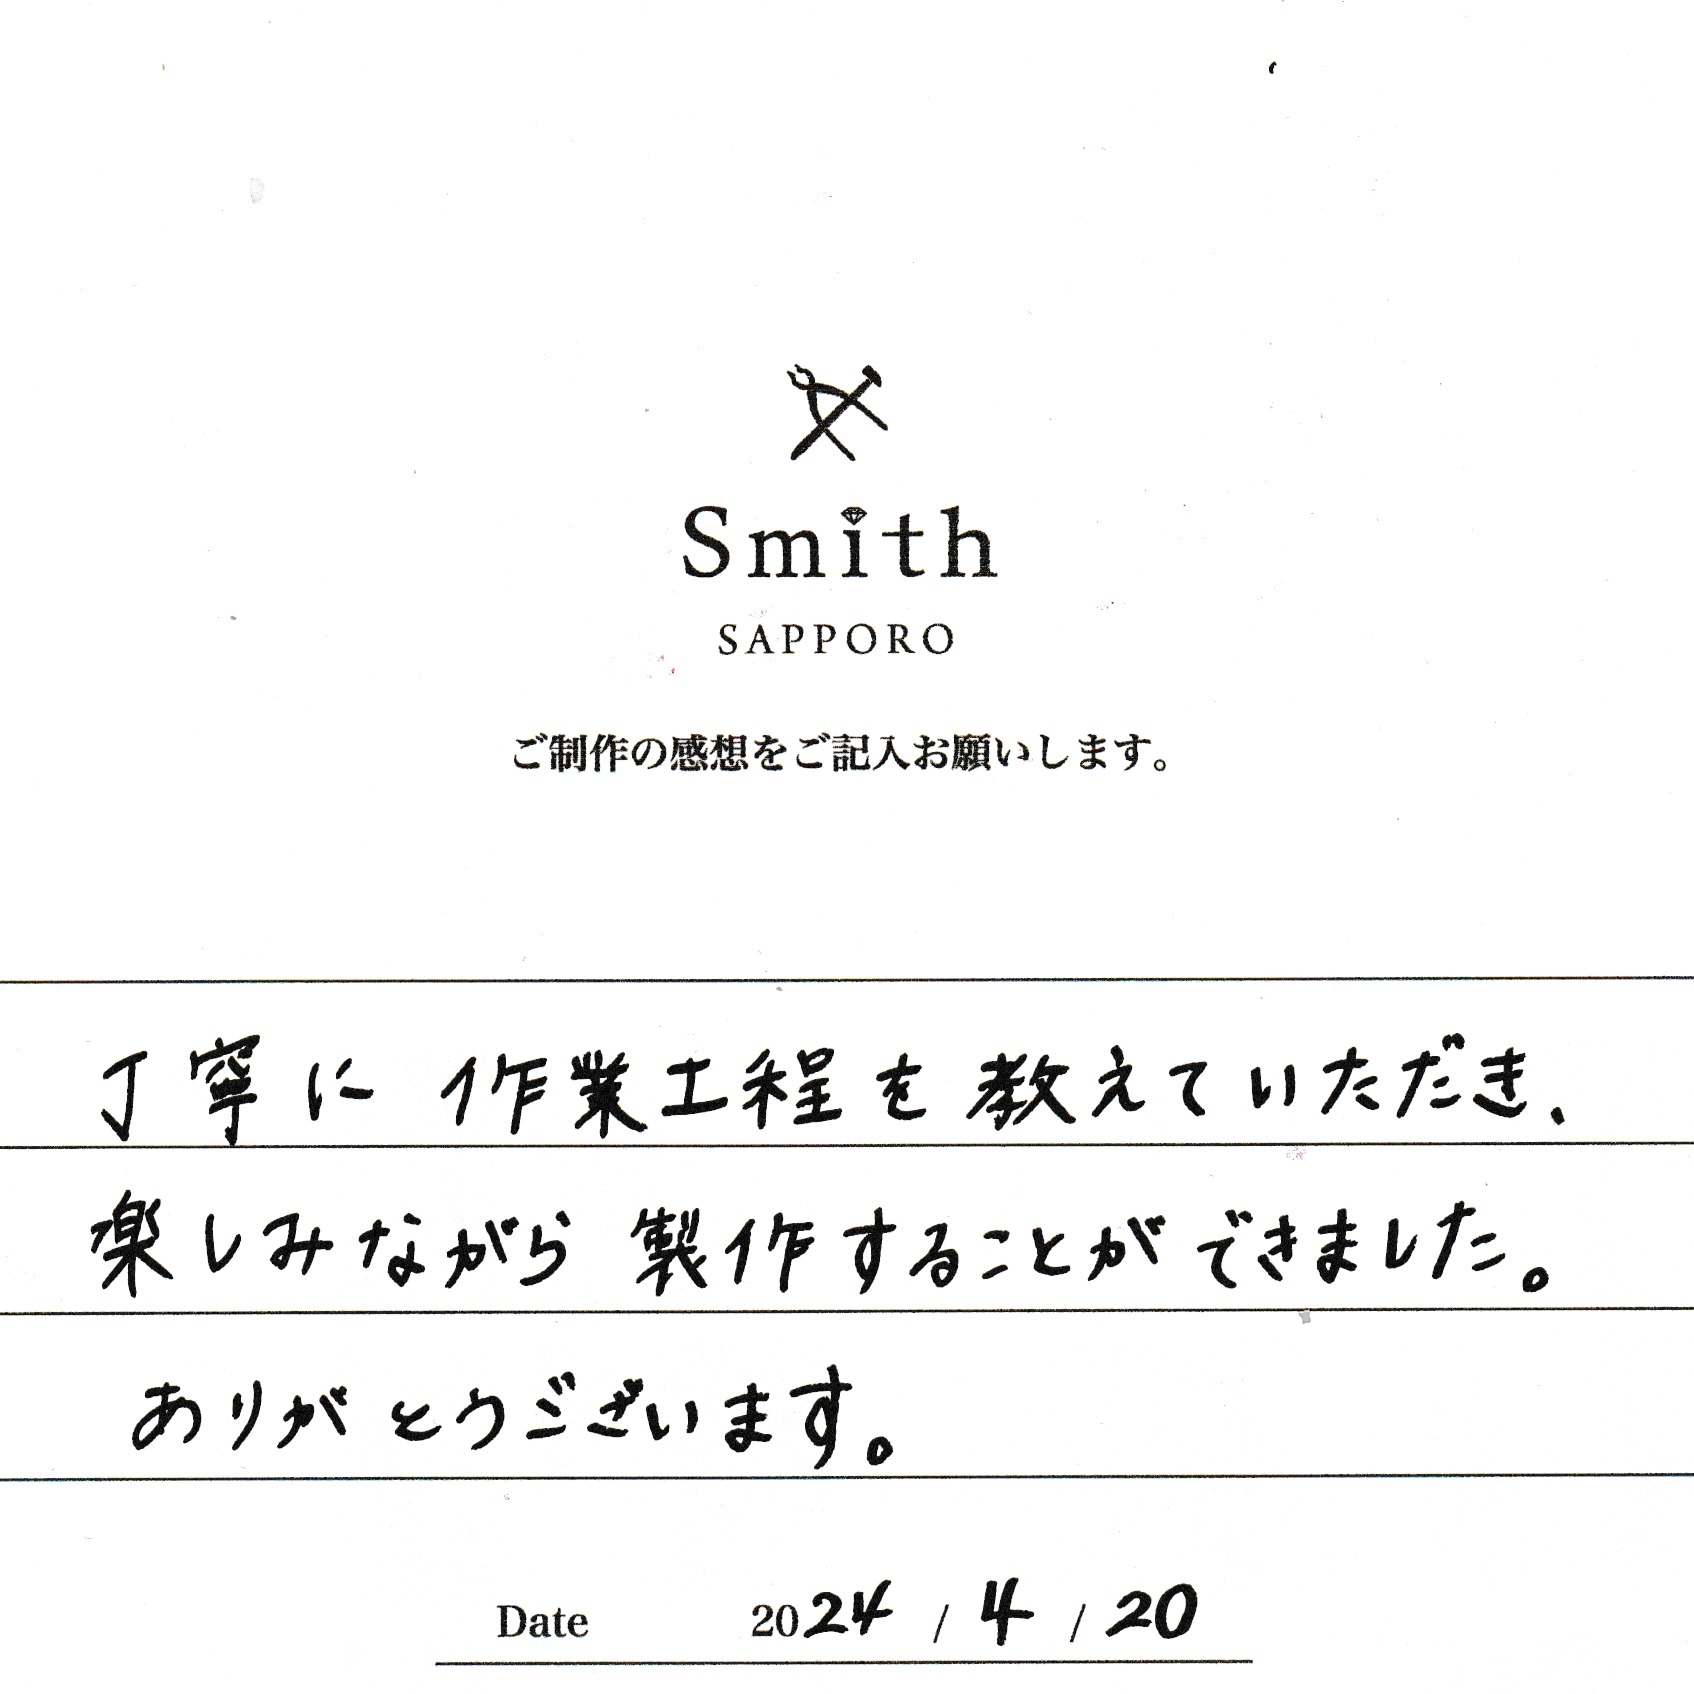 Smith
SAPPORO
ご制作の感想をご記入お願いします。
丁寧に作業工程を教えていただき、
楽しみながら製作することができました。
ありがとうございます。
Date 2024 / 4 / 20